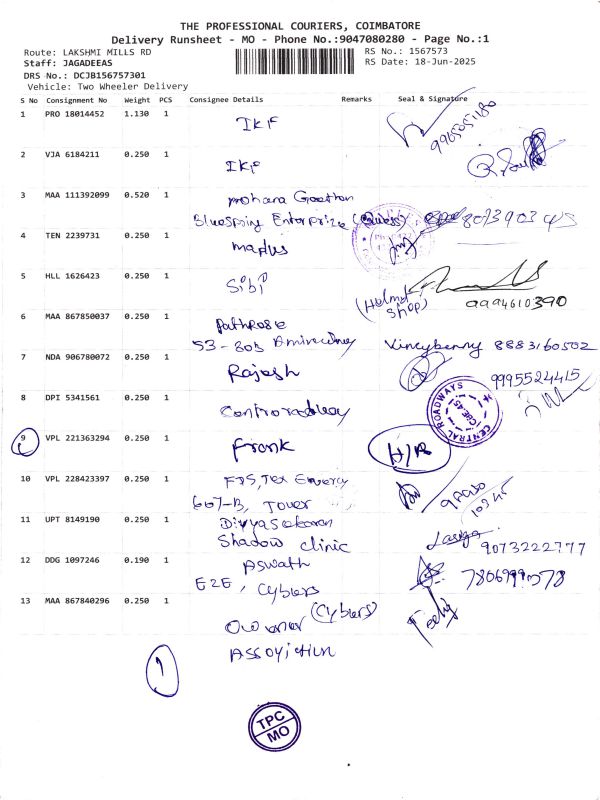 THE PROFESSIONAL COURIERS, COIMBATORE
Delivery Runsheet - MO - Phone No.:9047080280 - Page No.:1
Route: LAKSHMI MILLS RD
RS No.: 1567573
Staff: JAGADEEAS
RS Date: 18-Jun-2025
DRS No.: DCJB156757301
Vehicle: Two Wheeler Delivery
S No Consignment No Weight PCS Consignee Details Remarks Seal & Signature
1 PRO 18014452 1.130 1 IKF
2 VJA 6184211 0.250 1 IKF
3 MAA 111392099 0.520 1 mohana
Bluespring Enterprize
4 TEN 2239731 0.250 1
5 HLL 1626423 0.250 1 Sibi
(Helmet Shop) 9994610390
6 MAA 867850037 0.250 1 Pathrose
53-803 Vincybenny 8883160502
7 NDA 906780072 0.250 1 Rajesh 9995524415
8 DPI 5341561 0.250 1
CENTRAL ROADWAYS
9 VPL 221363294 0.250 1 Frank H/R
10 VPL 228423397 0.250 1
607-B, Tower
11 UPT 8149190 0.250 1
Shadow clinic 9073222777
12 DDG 1097246 0.190 1 Aswath
E2E, Cybers
13 MAA 867840296 0.250 1 (Cybers)
Owner
1
TPC
MO